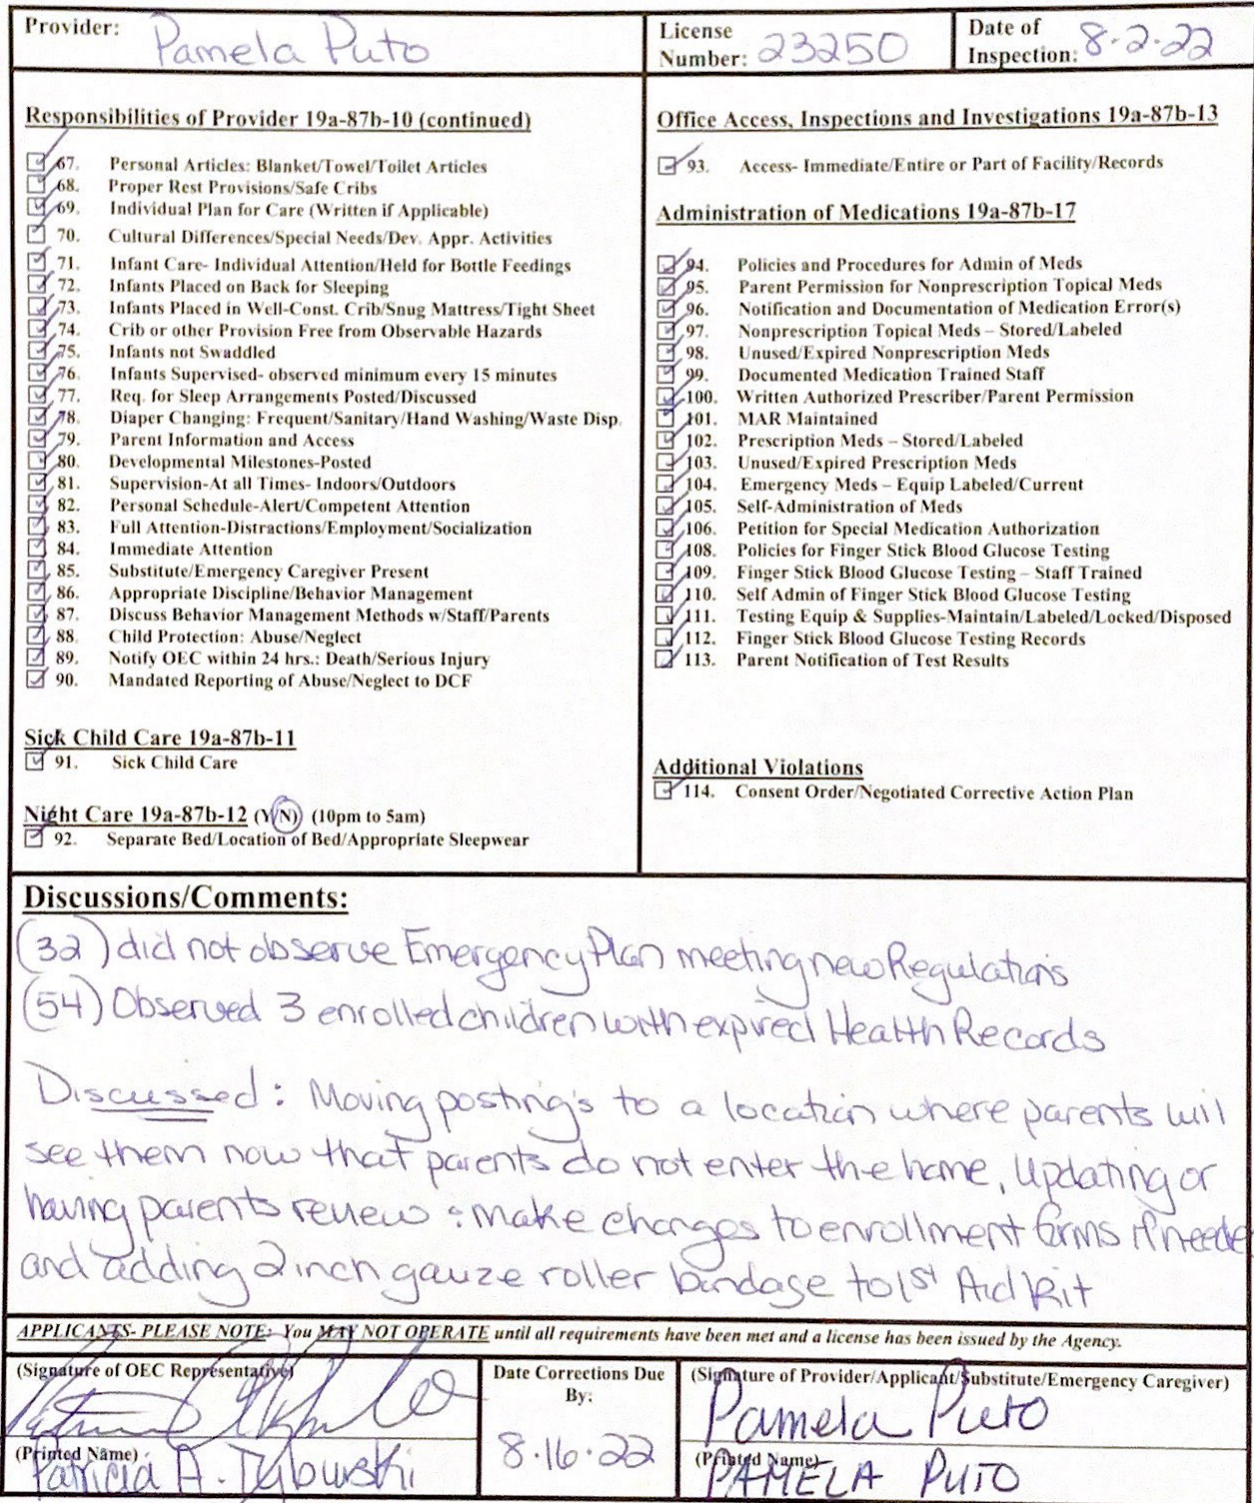 Provider: Pamela Puto
License Number: 23250
Date of Inspection: 8-2-22
Responsibilities of Provider 19a-87b-10 (continued)
67. Personal Articles: Blanket/Towel/Toilet Articles
68. Proper Rest Provisions/Safe Cribs
69. Individual Plan for Care (Written if Applicable)
70. Cultural Differences/Special Needs/Dev. Appr. Activities
71. Infant Care- Individual Attention/Held for Bottle Feedings
72. Infants Placed on Back for Sleeping
73. Infants Placed in Well-Const. Crib/Snug Mattress/Tight Sheet
74. Crib or other Provision Free from Observable Hazards
75. Infants not Swaddled
76. Infants Supervised- observed minimum every 15 minutes
77. Req. for Sleep Arrangements Posted/Discussed
78. Diaper Changing: Frequent/Sanitary/Hand Washing/Waste Disp.
79. Parent Information and Access
80. Developmental Milestones-Posted
81. Supervision-At all Times- Indoors/Outdoors
82. Personal Schedule-Alert/Competent Attention
83. Full Attention-Distractions/Employment/Socialization
84. Immediate Attention
85. Substitute/Emergency Caregiver Present
86. Appropriate Discipline/Behavior Management
87. Discuss Behavior Management Methods w/Staff/Parents
88. Child Protection: Abuse/Neglect
89. Notify OEC within 24 hrs.: Death/Serious Injury
90. Mandated Reporting of Abuse/Neglect to DCF
Sick Child Care 19a-87b-11
91. Sick Child Care
Night Care 19a-87b-12 (Y/N) (10pm to 5am)
92. Separate Bed/Location of Bed/Appropriate Sleepwear
Office Access, Inspections and Investigations 19a-87b-13
93. Access- Immediate/Entire or Part of Facility/Records
Administration of Medications 19a-87b-17
94. Policies and Procedures for Admin of Meds
95. Parent Permission for Nonprescription Topical Meds
96. Notification and Documentation of Medication Error(s)
97. Nonprescription Topical Meds – Stored/Labeled
98. Unused/Expired Nonprescription Meds
99. Documented Medication Trained Staff
100. Written Authorized Prescriber/Parent Permission
101. MAR Maintained
102. Prescription Meds – Stored/Labeled
103. Unused/Expired Prescription Meds
104. Emergency Meds – Equip Labeled/Current
105. Self-Administration of Meds
106. Petition for Special Medication Authorization
108. Policies for Finger Stick Blood Glucose Testing
109. Finger Stick Blood Glucose Testing – Staff Trained
110. Self Admin of Finger Stick Blood Glucose Testing
111. Testing Equip & Supplies-Maintain/Labeled/Locked/Disposed
112. Finger Stick Blood Glucose Testing Records
113. Parent Notification of Test Results
Additional Violations
114. Consent Order/Negotiated Corrective Action Plan
Discussions/Comments:
(32) did not observe Emergency Plan meeting new Regulations
(54) Observed 3 enrolled children with expired Health Records
Discussed: Moving posting's to a location where parents will
see them now that parents do not enter the home, Updating or
having parents review : make changes to enrollment forms if neede
and adding 2 inch gauze roller bandage to 1st Aid kit
APPLICANTS- PLEASE NOTE: You MAY NOT OPERATE until all requirements have been met and a license has been issued by the Agency.
(Signature of OEC Representative)
(Printed Name)
Patricia A. Dybowski
Date Corrections Due By:
8-16-22
(Signature of Provider/Applicant/Substitute/Emergency Caregiver)
Pamela Puto
(Printed Name)
PAMELA PUTO